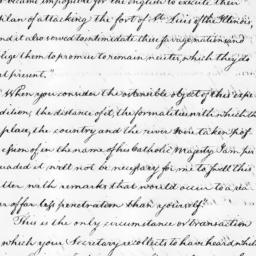 became impossible for the English to execute their
plan of attacking the fort of St. Luis of the Illinois,
and it also served to intimidate these savage nations, and
oblige them to promise to remain neuter, which they do
at present."
"When you consider the ostensible object of this expe-
dition, the distance of it, the formalities with which the
place, the country and the river were taken pos-
session of in the name of his Catholic Majesty, I am per-
suaded it will not be necessary for me to swell this
letter with remarks that would occur to a rea-
der of far less penetration than yourself."
This is the only circumstance or transaction
which your Secretary recollects to have heard which